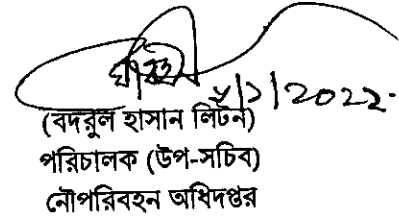 ৫/১/২০২২
(বদরুল হাসান লিটন)
পরিচালক (উপ-সচিব)
নৌপরিবহন অধিদপ্তর